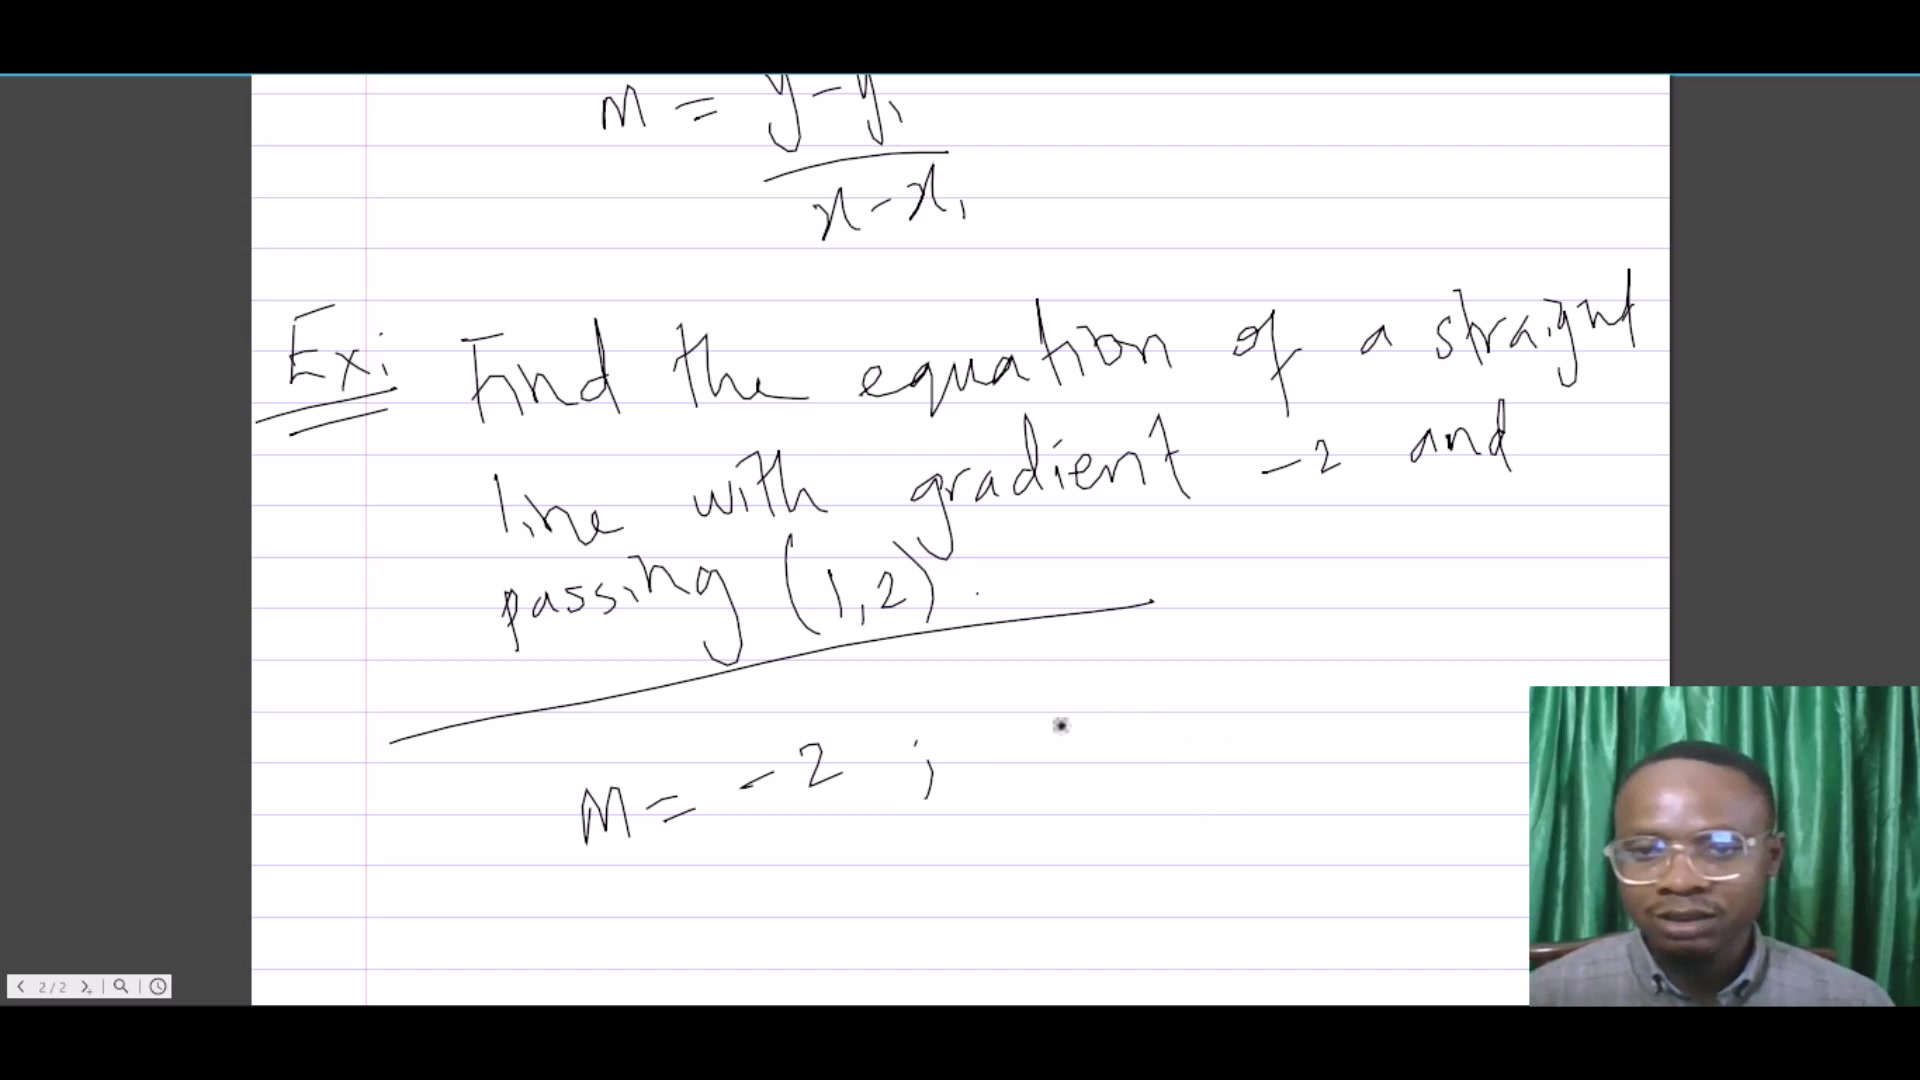 m = y - y₁
x - x₁
Ex: Find the equation of a straight
line with gradient -2 and
passing (1,2).
M = -2 ;
2/2